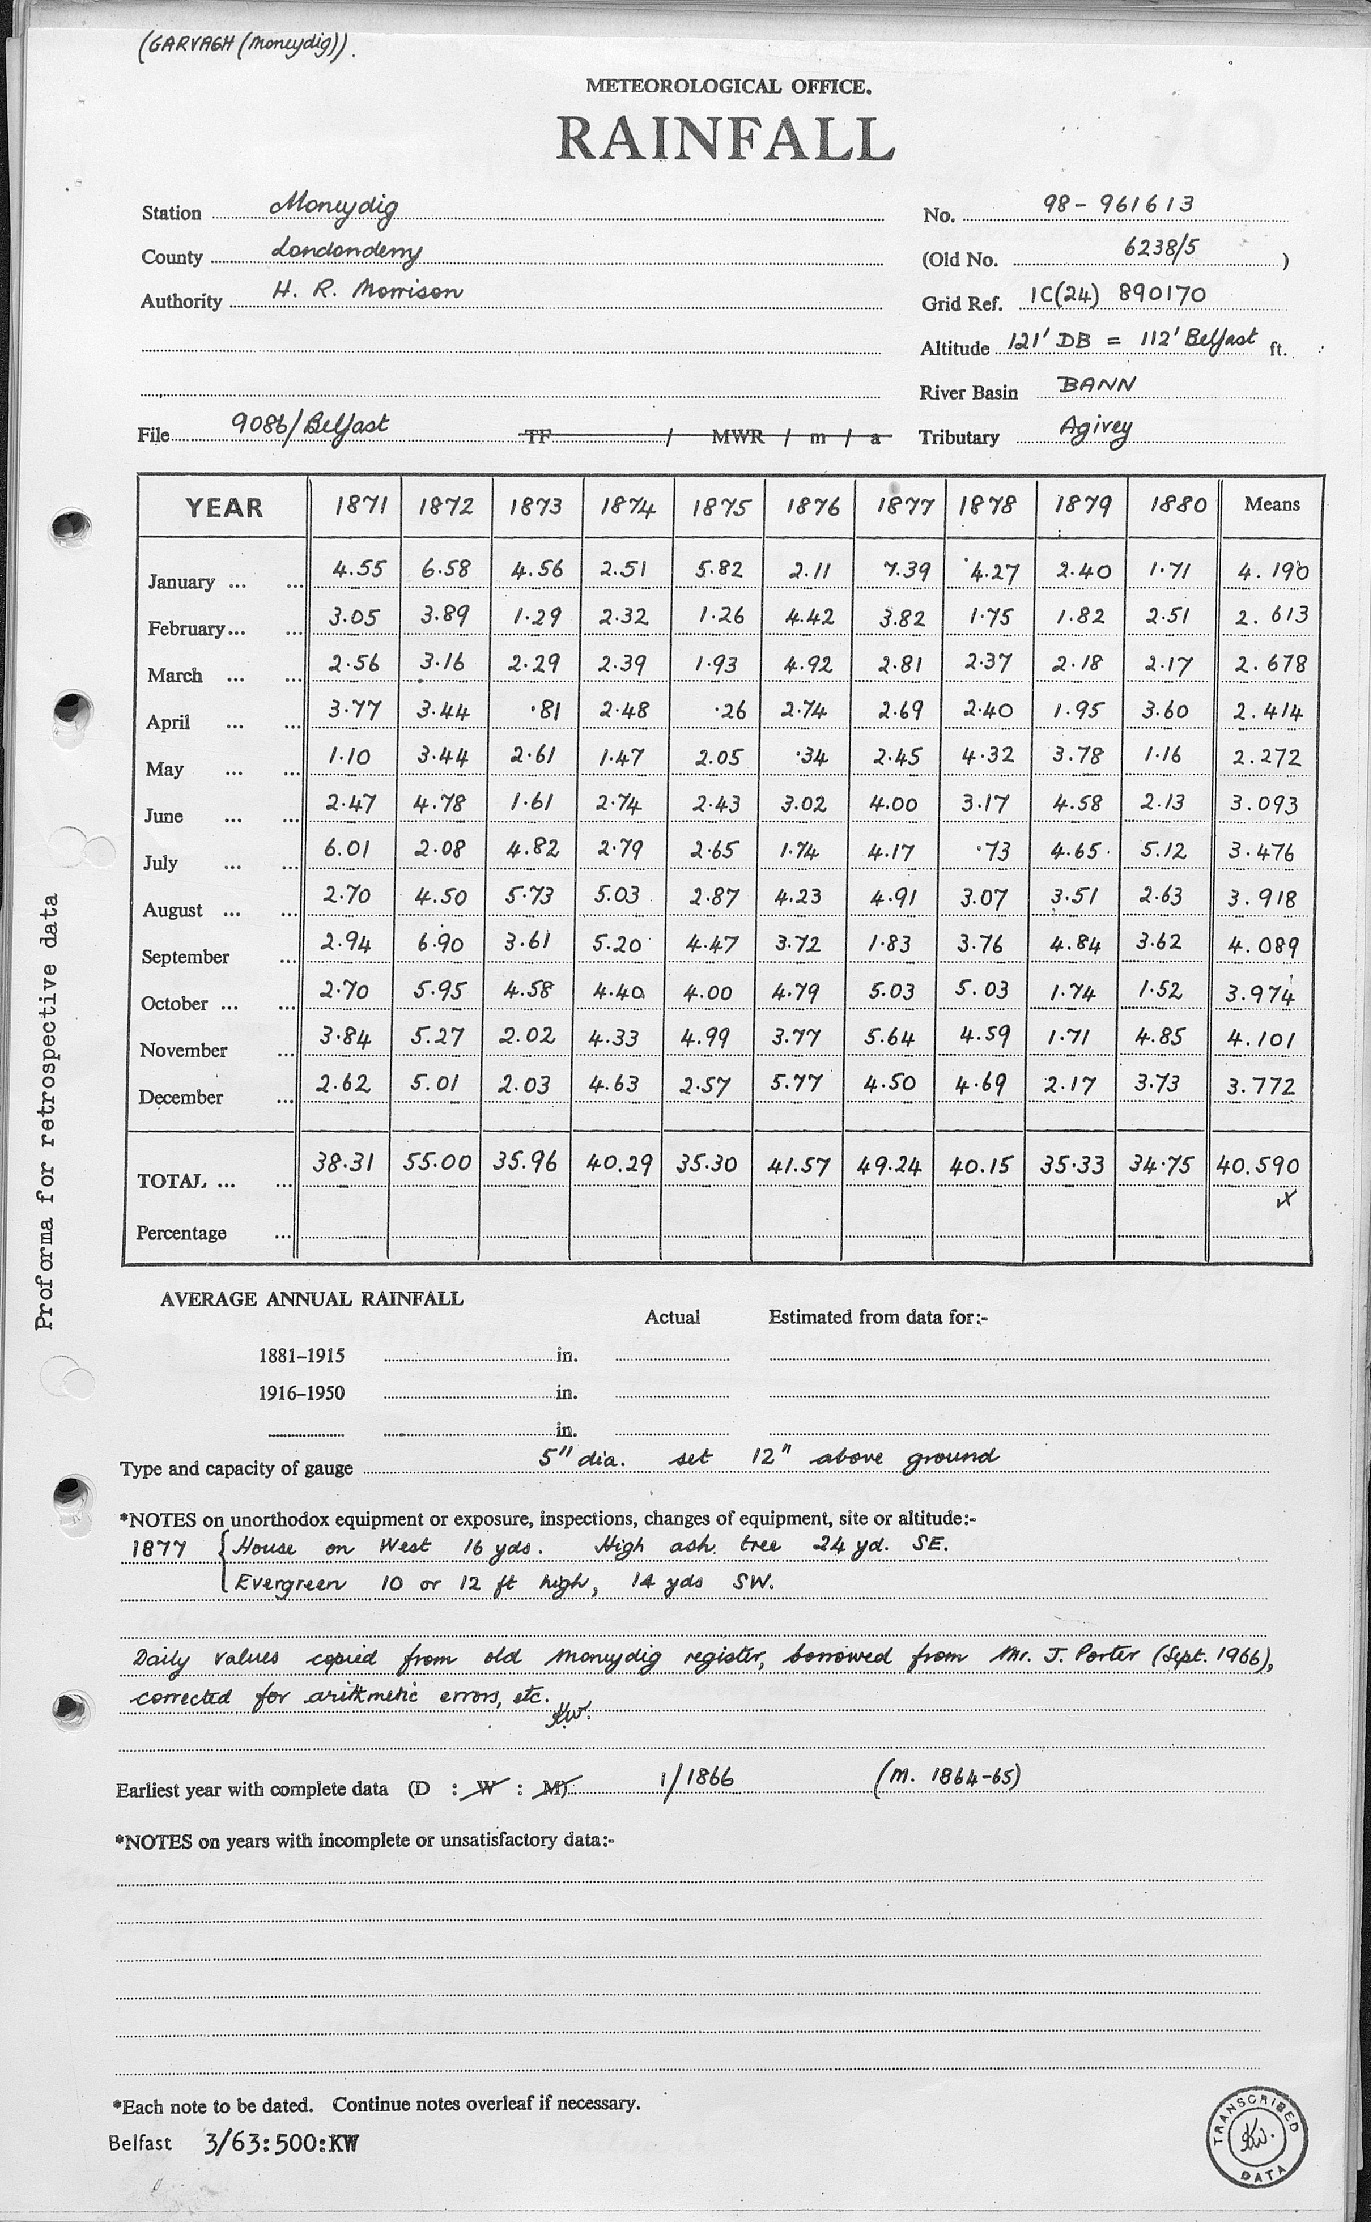 (GARVAGH (Moneydig)).
METEOROLOGICAL OFFICE.
RAINFALL
Station Moneydig No. 98-961613
County Londonderry (Old No. 6238/5 )
Authority H. R. Morrison Grid Ref. 1C(24) 890170
Altitude 121' DB = 112' Belfast ft.
River Basin BANN
File 9086/Belfast TF / MWR / m / a Tributary Agivey
YEAR 1871 1872 1873 1874 1875 1876 1877 1878 1879 1880 Means
January ... ... 4.55 6.58 4.56 2.51 5.82 2.11 7.39 4.27 2.40 1.71 4.190
February... ... 3.05 3.89 1.29 2.32 1.26 4.42 3.82 1.75 1.82 2.51 2.613
March ... ... 2.56 3.16 2.29 2.39 1.93 4.92 2.81 2.37 2.18 2.17 2.678
April ... ... 3.77 3.44 .81 2.48 .26 2.74 2.69 2.40 1.95 3.60 2.414
May ... ... 1.10 3.44 2.61 1.47 2.05 .34 2.45 4.32 3.78 1.16 2.272
June ... ... 2.47 4.78 1.61 2.74 2.43 3.02 4.00 3.17 4.58 2.13 3.093
July ... ... 6.01 2.08 4.82 2.79 2.65 1.74 4.17 .73 4.65 5.12 3.476
August ... ... 2.70 4.50 5.73 5.03 2.87 4.23 4.91 3.07 3.51 2.63 3.918
September ... 2.94 6.90 3.61 5.20 4.47 3.72 1.83 3.76 4.84 3.62 4.089
October ... ... 2.70 5.95 4.58 4.40 4.00 4.79 5.03 5.03 1.74 1.52 3.974
November ... 3.84 5.27 2.02 4.33 4.99 3.77 5.64 4.59 1.71 4.85 4.101
December ... 2.62 5.01 2.03 4.63 2.57 5.77 4.50 4.69 2.17 3.73 3.772
TOTAL ... ... 38.31 55.00 35.96 40.29 35.30 41.57 49.24 40.15 35.33 34.75 40.590
Percentage ...
Proforma for retrospective data
AVERAGE ANNUAL RAINFALL
Actual Estimated from data for:-
1881–1915 in.
1916–1950 in.
in.
Type and capacity of gauge 5" dia. set 12" above ground
*NOTES on unorthodox equipment or exposure, inspections, changes of equipment, site or altitude:-
1877 { House on West 16 yds. High ash tree 24 yd. SE.
Evergreen 10 or 12 ft high, 14 yds SW.
Daily values copied from old Moneydig register, borrowed from Mr. J. Porter (Sept. 1966),
corrected for arithmetic errors, etc.
KW.
Earliest year with complete data (D : W : M) 1/1866 (M. 1864-65)
*NOTES on years with incomplete or unsatisfactory data:-
*Each note to be dated. Continue notes overleaf if necessary.
Belfast 3/63:500:KW
TRANSCRIBED
KW.
DATA